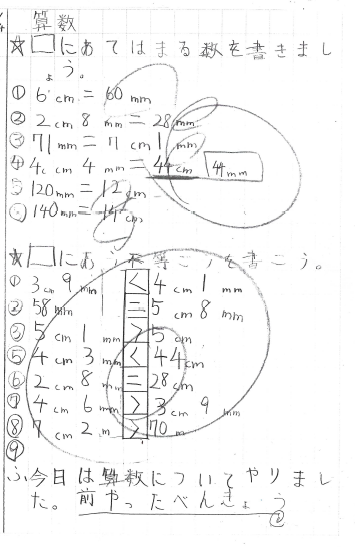 算数
☆□にあてはまる数を書きまし
ょう。
① 6cm=60mm
② 2cm 8mm=28mm
③ 71mm=7cm1mm
④ 4cm 4mm=44cm 44mm
⑤ 120mm=12cm
⑥ 140mm=14cm
☆□にあう不等ごうを書こう。
① 3cm 9mm < 4cm 1mm
② 58mm = 5cm 8mm
③ 5cm 1mm > 5cm
⑤ 4cm 3mm < 44cm
⑥ 2cm 8mm = 28cm
⑦ 4cm 6mm > 3cm 9mm
⑧ 7cm 2m > 70m
⑨
ふ 今日は算数についてやりまし
た。前やったべんきょう